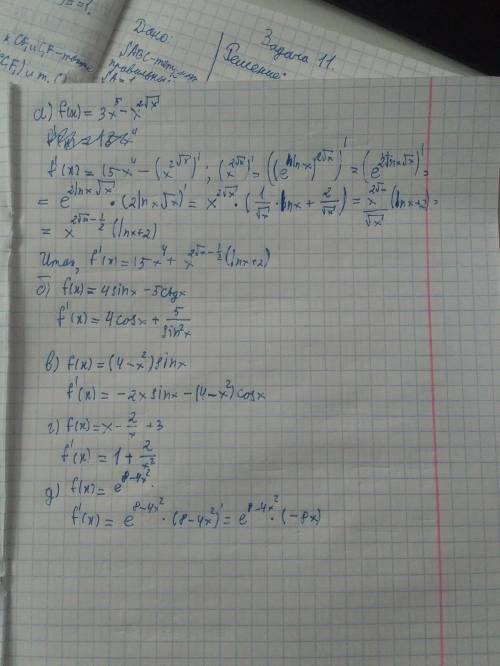 = 1.
Дано:
Задача 11.
SABC-
правильный
Решение:
SA=1
а) f(x) = 3x⁵ - x^(2√x)
f'(x) = 15x⁴ - (x^(2√x))' ; (x^(2√x))' = ((e^(lnx))^(2√x))' = (e^(2lnx√x))' =
= e^(2lnx√x) · (2lnx√x)' = x^(2√x) · (1/√x · lnx + 2/√x) = x^(2√x)/√x (lnx+2) =
= x^(2√x - 1/2) (lnx+2)
Итак, f'(x) = 15x⁴ + x^(2√x - 1/2) (lnx+2)
б) f(x) = 4sinx - 5ctgx
f'(x) = 4cosx + 5/sin²x
в) f(x) = (4-x²)sinx
f'(x) = -2x sinx - (4-x²)cosx
г) f(x) = x - 2/x + 3
f'(x) = 1 + 2/x²
д) f(x) = e^(8-4x²)
f'(x) = e^(8-4x²) · (8-4x²)' = e^(8-4x²) · (-8x)